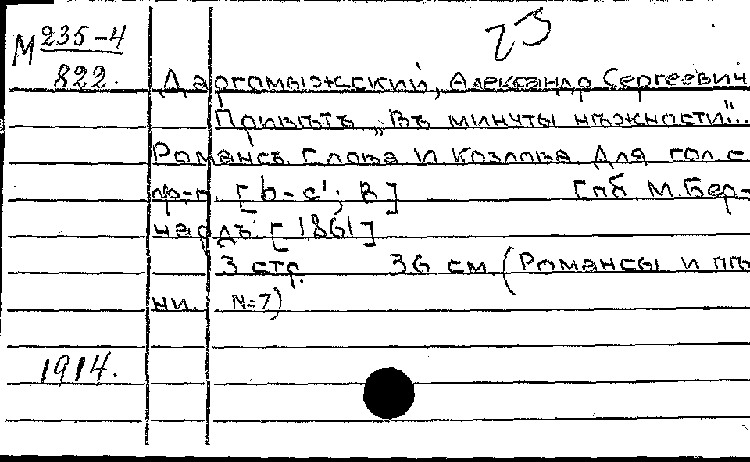 23
М 235-4
822.
Даргомыжский, Александр Сергеевич
Привѣтъ „Въ минуты нѣжности"..
Романсъ. Слова И Козлова. Для гол. с
ф-п. [b-c¹; B] Спб М. Бер-
нардъ [1861]
3 стр. 36 см. (Романсы и пѣ
ни. N=7)
1914.